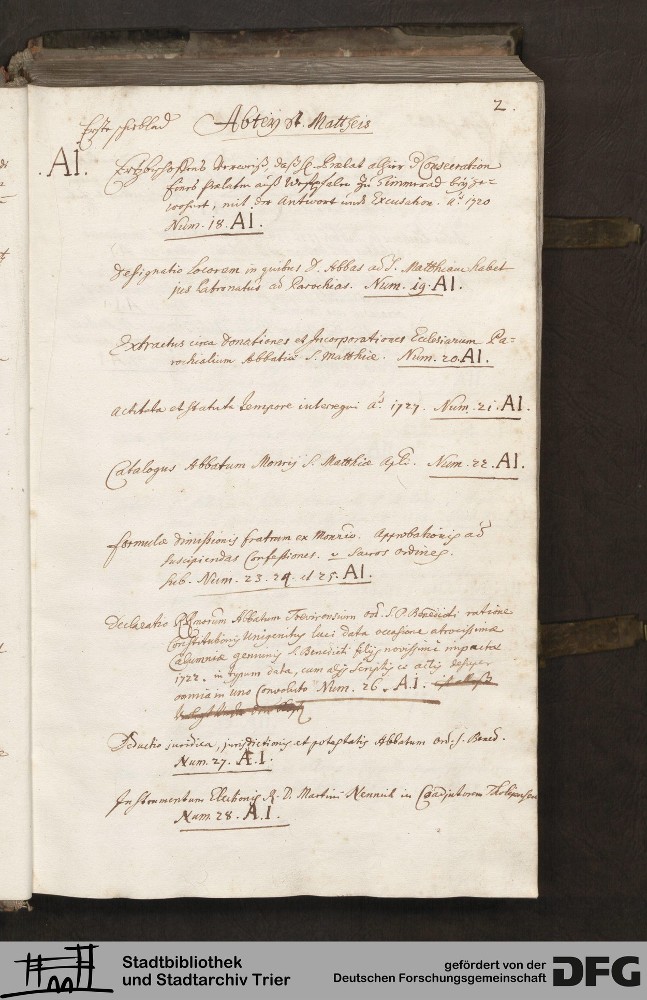 2.
Erste schublad Abtey St. Mattheis
AI. Ertzbischoffens Verweiß, daß H. Praelat alhier d Consecration
eines Praelaten auß Westphalen zu Himmerad beyge-
wohnet, mit der Antwort undt Excusation. aº 1720
Num. 18. AI.
Designatio Locorum in quibus D. Abbas ad S. Matthiam habet
jus Patronatus ad Parochias. Num. 19. AI.
Extractus circa donationes et Incorporationes Ecclesiarum Pa-
rochialium Abbatiae S. Matthiae. Num. 20. AI.
Actitata et statuta tempore interregni aº 1727. Num. 21. AI.
Catalogus Abbatum Monrij S. Matthiae Apli. Num. 22. AI.
formulae dimissionis fratrum ex Monrio. Approbationis ad
suscipiendas Confessiones. sacros ordines.
sub. Num. 23. 24. et 25. AI.
Declaratio RRmorum Abbatum Trevirensium ord. S. P. Benedicti ratione
Constitutionis Unigenitus luci data occasione atrocissimae
Calumniae genuinis S. Benedicti filijs novissime impactae
1722. in typum data, cum alijs scriptis et actis
omnia in uno Convoluto Num. 26. A.I.
Deductio juridica, jurisdictionis et potestatis Abbatum ord. S. Bened.
Num. 27. A.I.
Instrumentum Electionis R. D. Martini Nennich in Coadjutorem Tholeyensem
Num. 28. A.I.
Stadtbibliothek
und Stadtarchiv Trier
gefördert von der
Deutschen Forschungsgemeinschaft
DFG